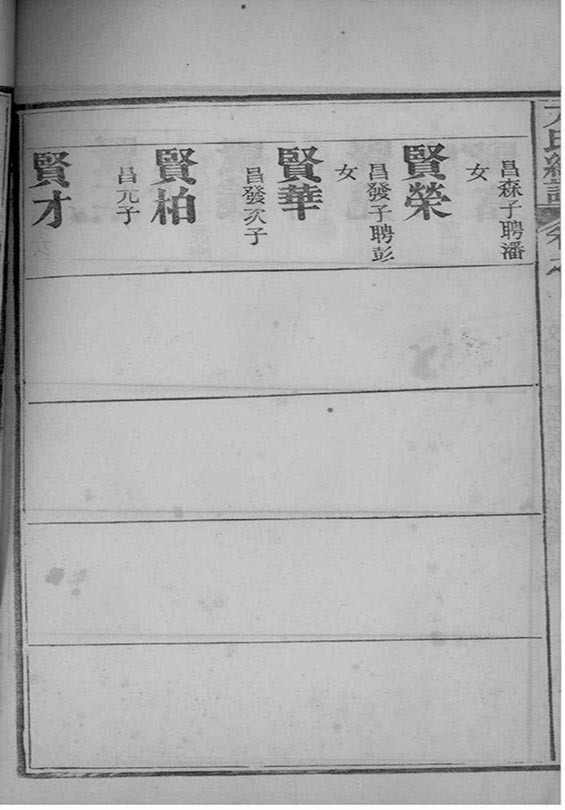 氏總譜
卷之
昌森子聘潘
女
賢榮
昌發子聘彭
女
賢華
昌發次子
賢柏
昌元子
賢才